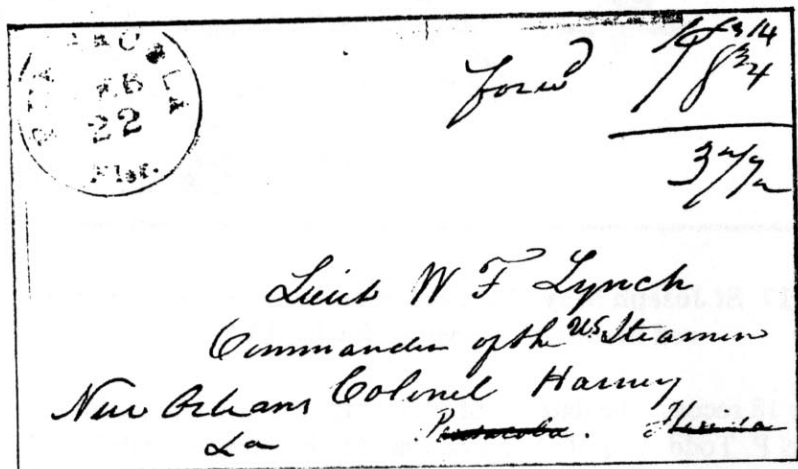 PENSACOLA
FEB
22
forwd 18 3/4
18 3/4
37 1/2
Lieut W F Lynch
Commander of the US Steamer
Colonel Harney
New Orleans
La
Pensacola. Florida